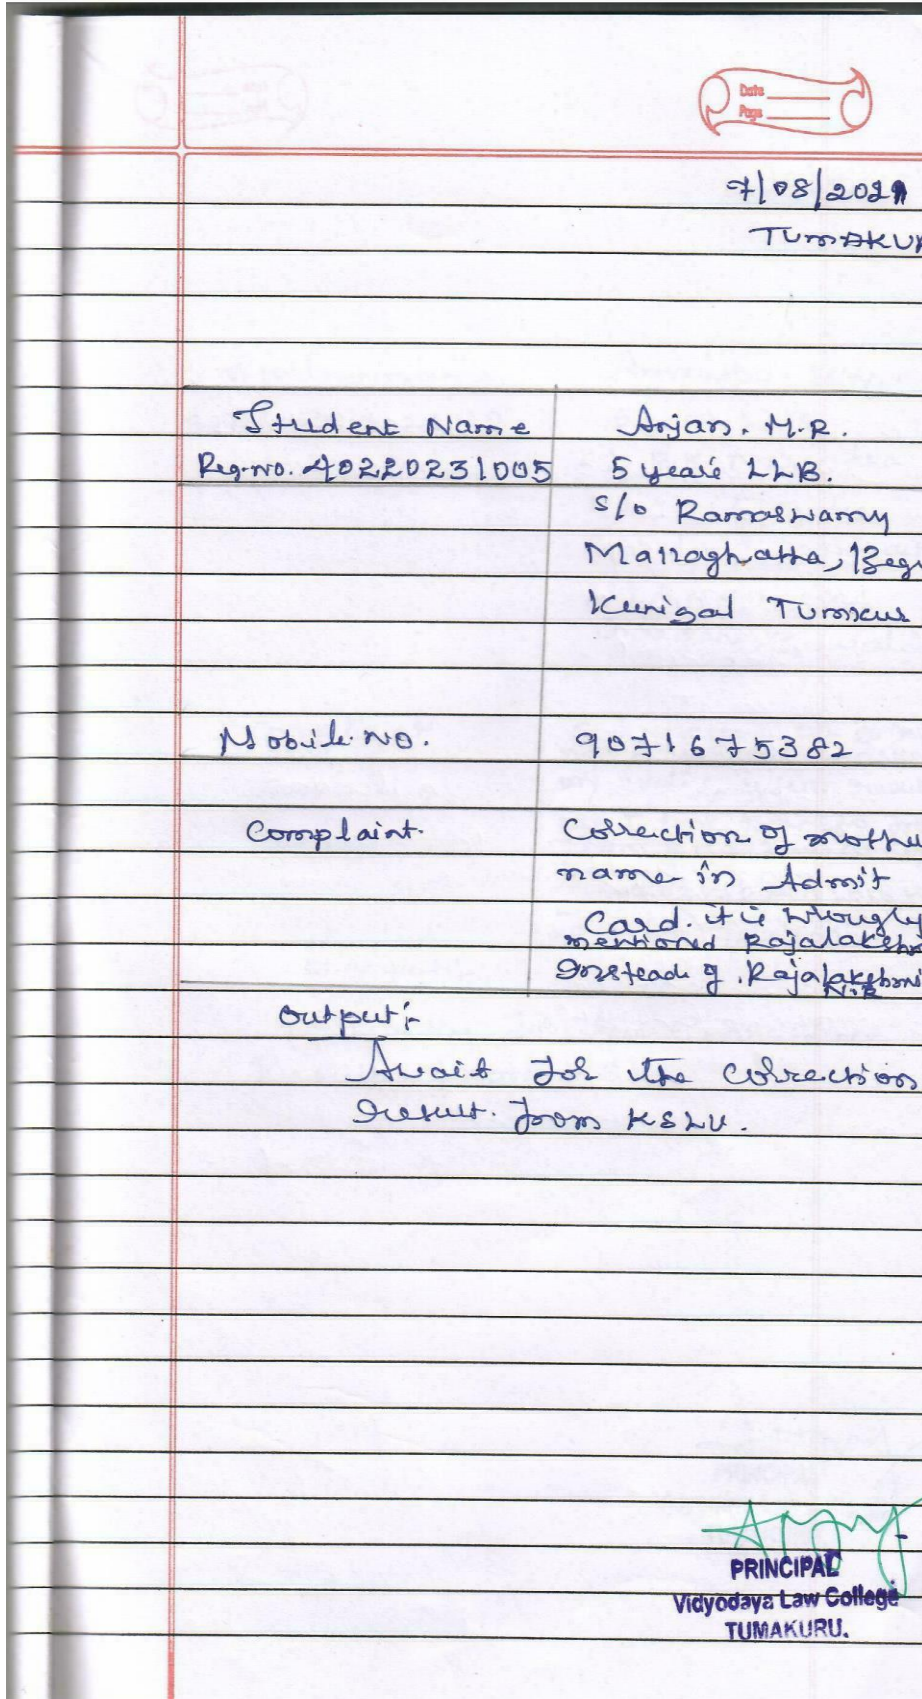 Date
Page
7/08/2021
TUMAKU
Student Name Arjan. M.R.
Reg.no. 40220231005 5 year's LLB.
S/o Ramaswamy
Begu
Kunigal Tumkur
Mobile. no. 9071675382
Complaint. Correction of mothe
name in Admit
Card. it is wrougly
mentioned Rajalaksh
Instead of . Rajalakshmi
N.R
output:-
Await for the correction
result. from KSLU.
PRINCIPAL
Vidyodaya Law College
TUMAKURU.